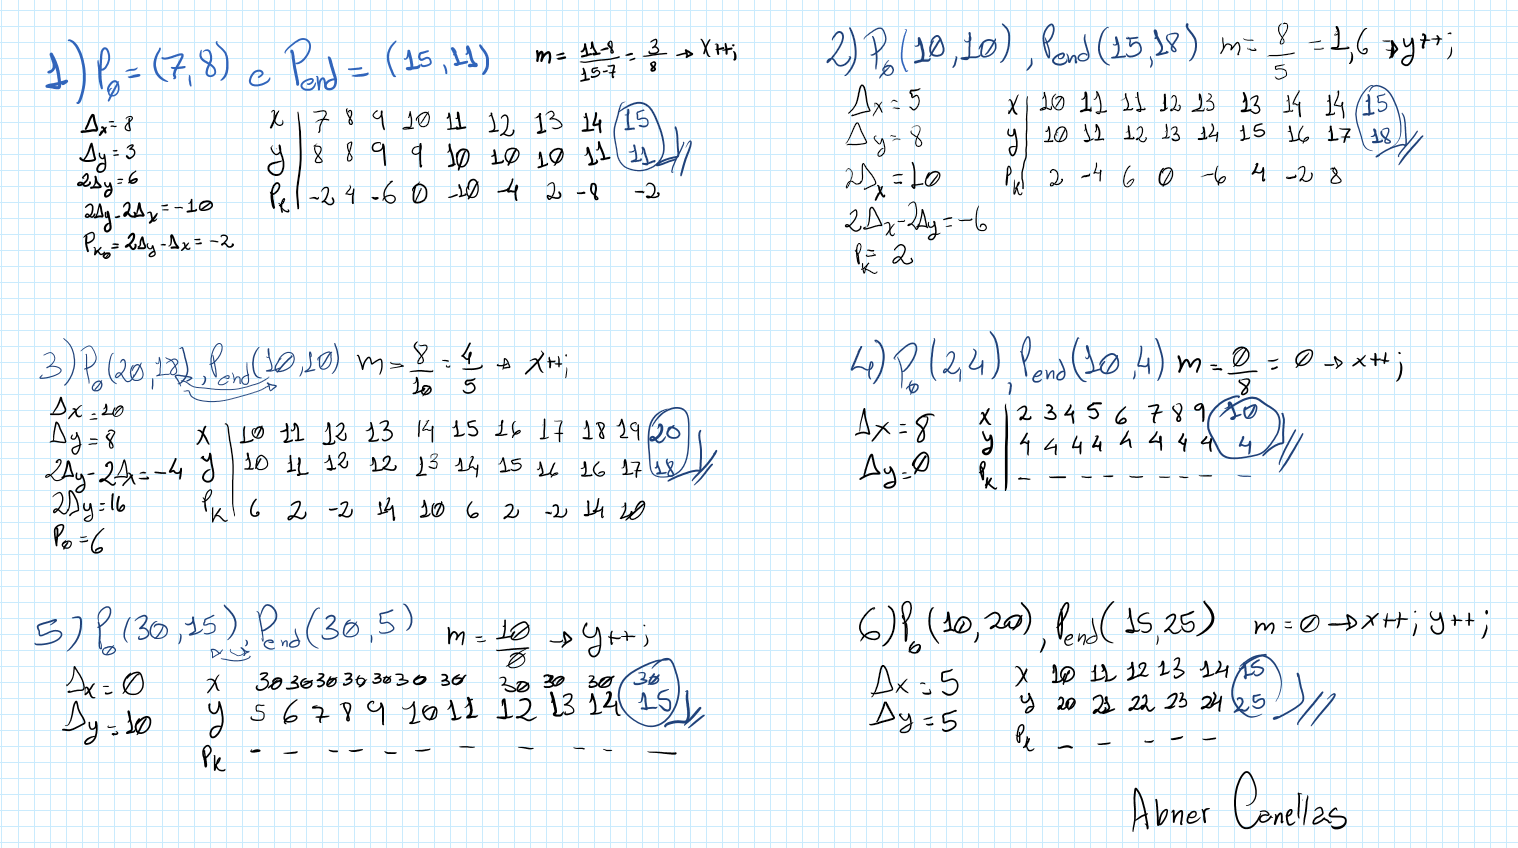 1) P₀ = (7,8) e Pend = (15,11) m = 11-8/15-7 = 3/8 → x++;
Δx = 8
Δy = 3
2Δy = 6
2Δy - 2Δx = -10
Pk₀ = 2Δy - Δx = -2
x | 7 8 9 10 11 12 13 14 15
y | 8 8 9 9 10 10 10 11 11
Pk | -2 4 -6 0 -10 -4 2 -8 -2
2) P₀(10,10), Pend(15,18) m = 8/5 = 1,6 → y++;
Δx = 5
Δy = 8
2Δx = 10
2Δx - 2Δy = -6
Pk = 2
x | 10 11 11 12 13 13 14 14 15
y | 10 11 12 13 14 15 16 17 18
Pk | 2 -4 6 0 -6 4 -2 8
3) P₀(20,18), Pend(10,10) m = 8/10 = 4/5 → x++;
Δx = 10
Δy = 8
2Δy - 2Δx = -4
2Δy = 16
P₀ = 6
x | 10 11 12 13 14 15 16 17 18 19 20
y | 10 11 12 12 13 14 15 16 16 17 18
Pk | 6 2 -2 14 10 6 2 -2 14 10
4) P₀(2,4), Pend(10,4) m = 0/8 = 0 → x++;
Δx = 8
Δy = 0
x | 2 3 4 5 6 7 8 9 10
y | 4 4 4 4 4 4 4 4 4
Pk | - - - - - - - - -
5) P₀(30,15), Pend(30,5) m = 10/0 → y++;
Δx = 0
Δy = 10
x 30 30 30 30 30 30 30 30 30 30 30
y 5 6 7 8 9 10 11 12 13 14 15
Pk - - - - - - - - - - -
6) P₀(10,20), Pend(15,25) m = 0 → x++; y++;
Δx = 5
Δy = 5
x 10 11 12 13 14 15
y 20 21 22 23 24 25
Pk - - - - -
Abner Canellas